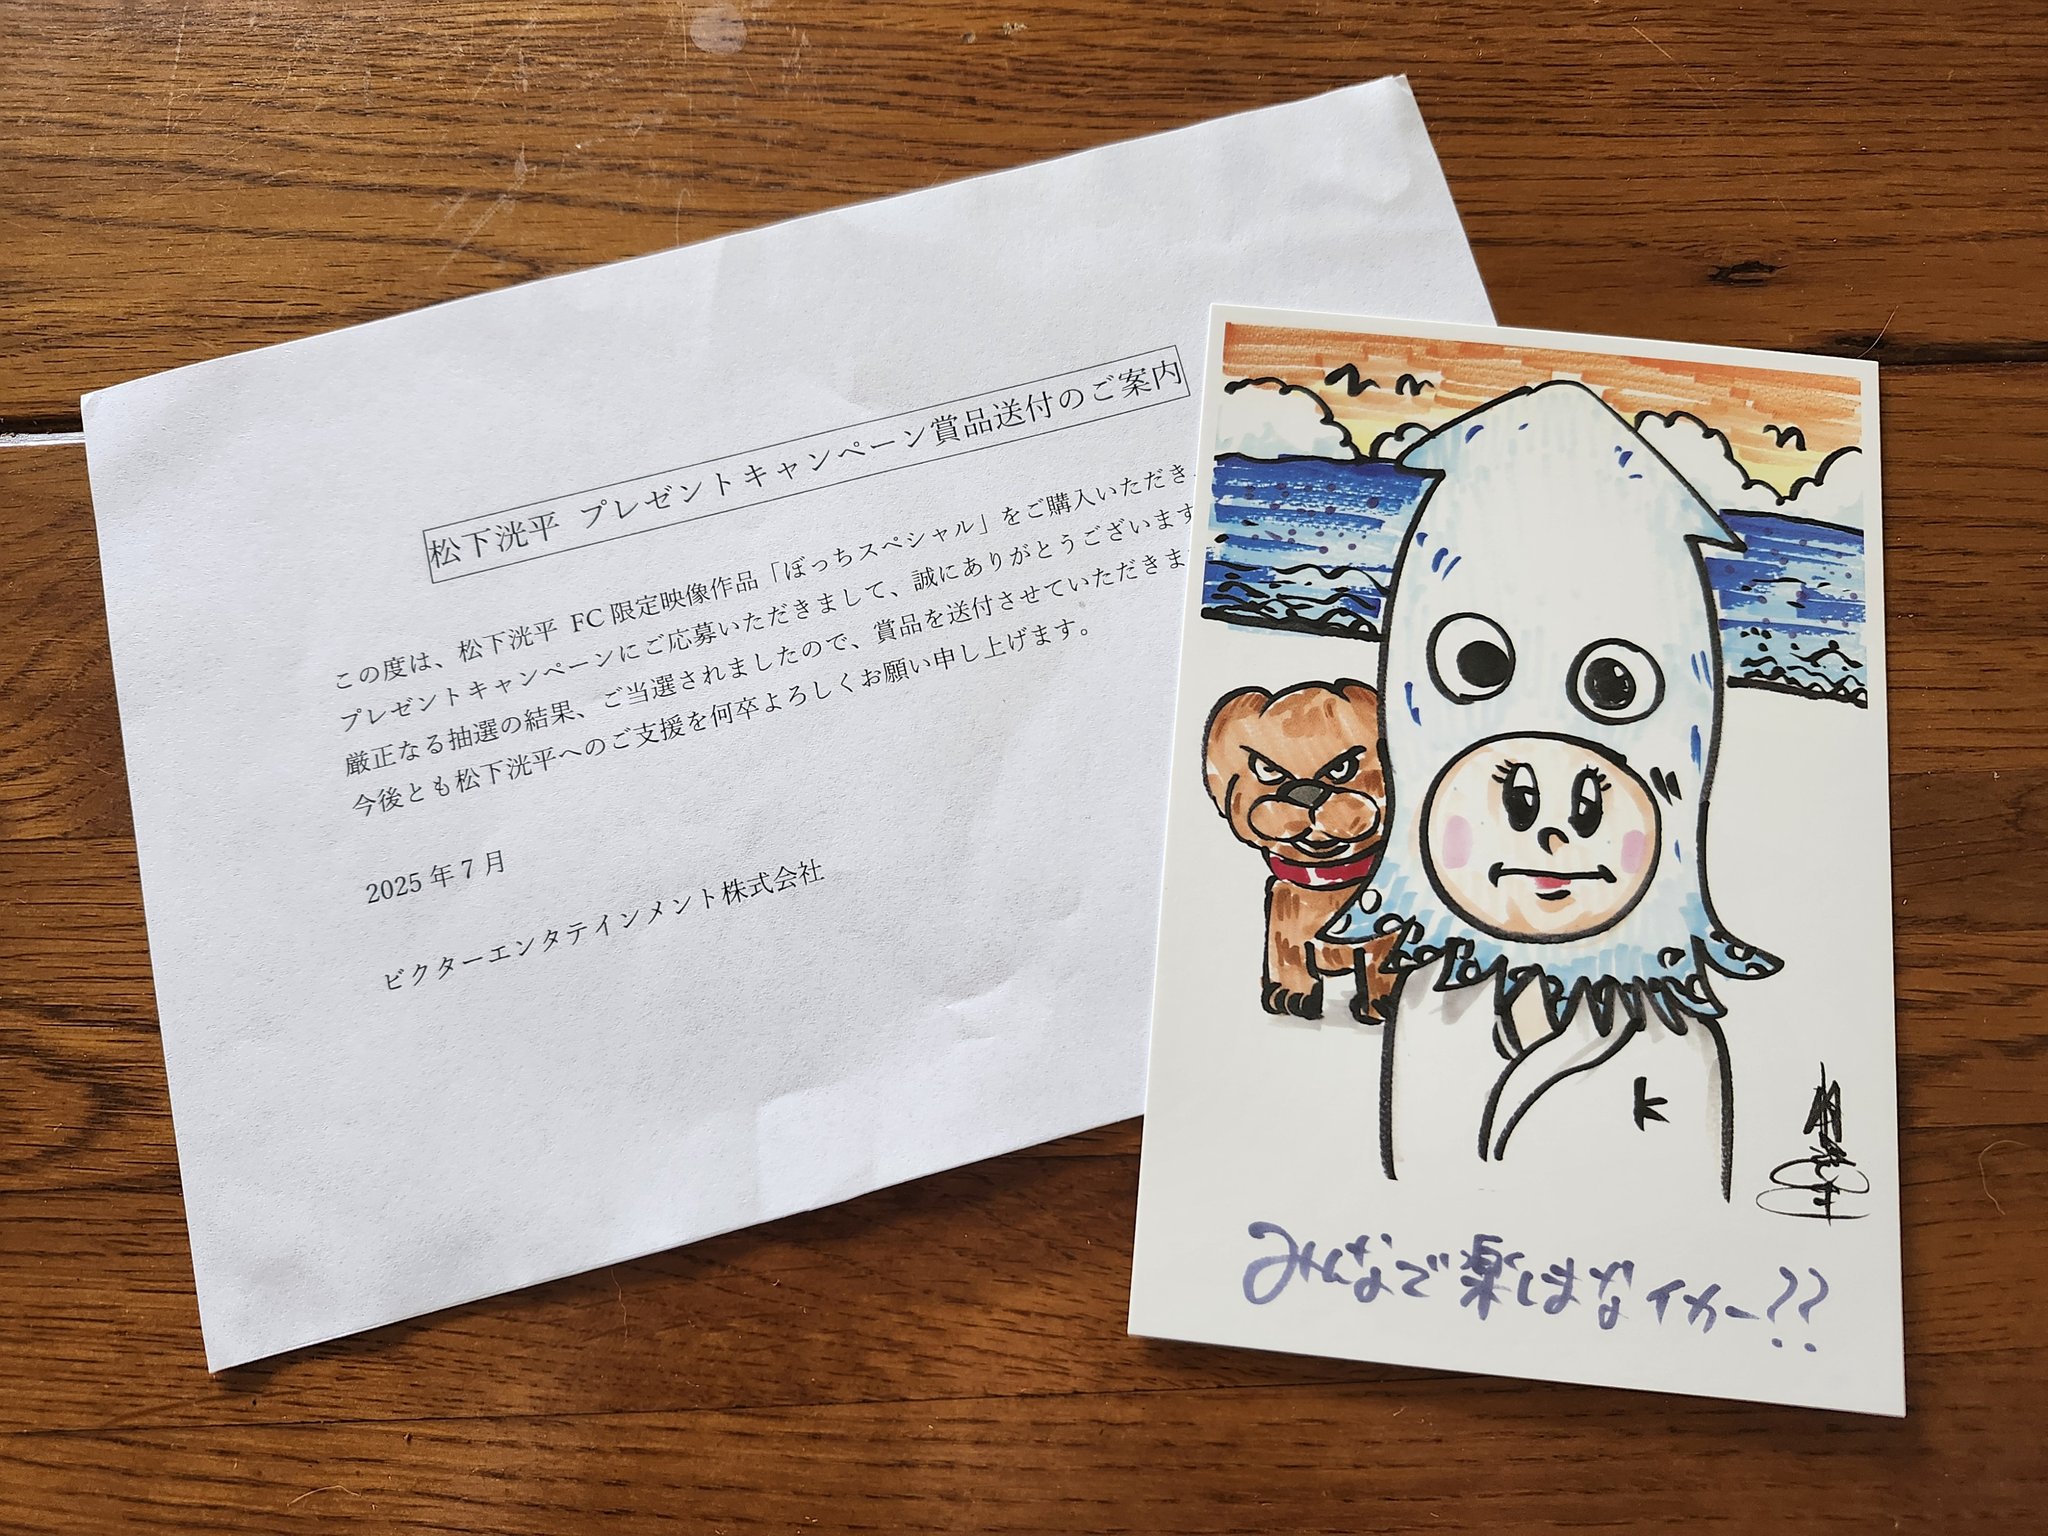 松下洸平 プレゼントキャンペーン賞品送付のご案内
この度は、松下洸平 FC 限定映像作品「ぼっちスペシャル」をご購入いただき、
プレゼントキャンペーンにご応募いただきまして、誠にありがとうございます
厳正なる抽選の結果、ご当選されましたので、賞品を送付させていただきま
今後とも松下洸平へのご支援を何卒よろしくお願い申し上げます。
2025 年 7 月
ビクターエンタテインメント株式会社
K
みんなで楽しまなイカー??